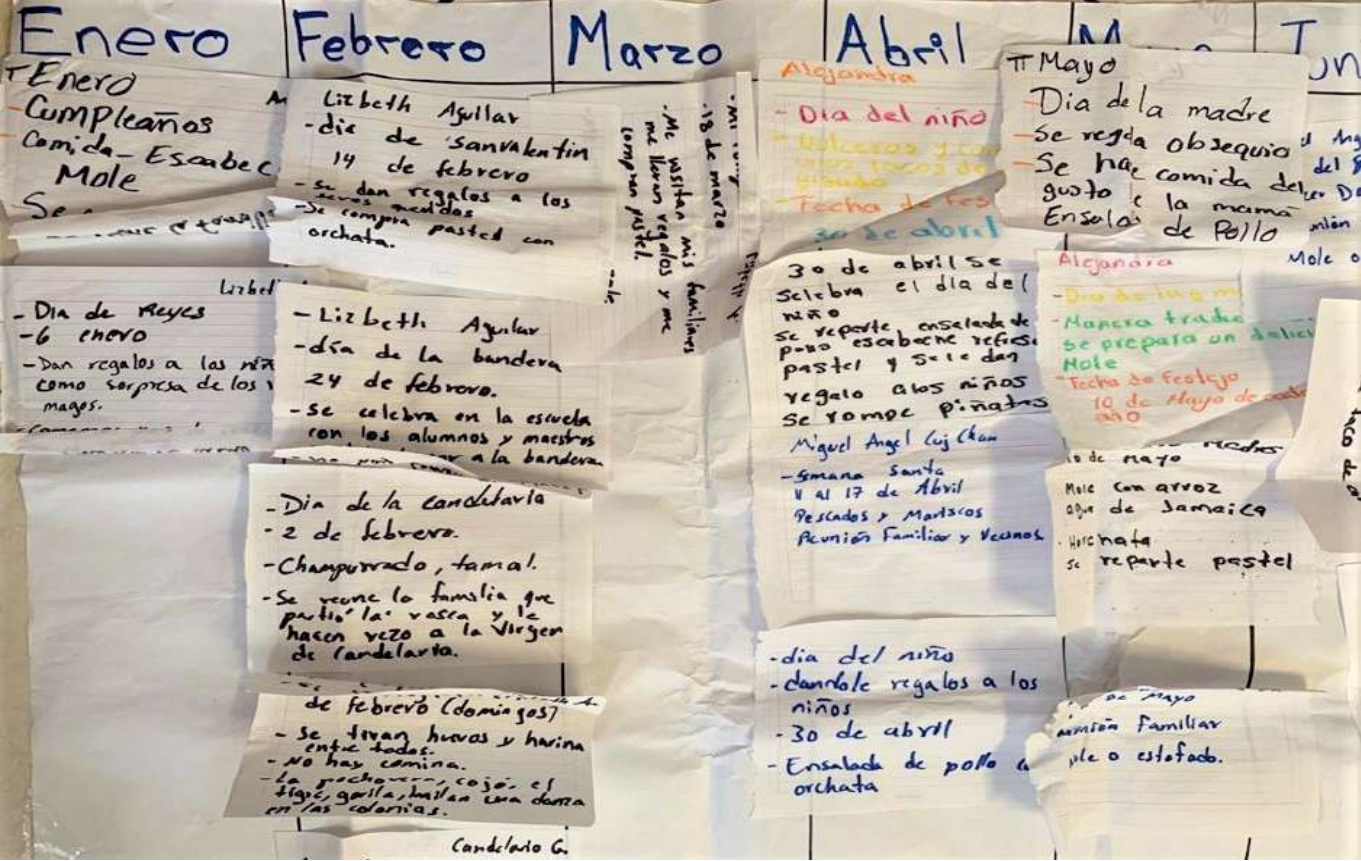 Enero
Febrero
Marzo
Abril
Enero
- Cumpleaños
- Comida - Escabec
Mole
Se
Lizbeth
- Dia de Reyes
- 6 enero
- Dan regalos a los niñ
como sorpresa de los
magos.
Lizbeth Aguilar
- die de sanvalentin
14 de febrero
- Se dan regalos a los
- Se compra pastel con
orchata.
- Lizbeth Aguilar
- día de la bandera
24 de febrero.
- Se celebra en la escuela
con los alumnos y maestros
a la bandera
- Dia de la candelaria
- 2 de febrero.
- Champurrado, tamal.
- Se reune la familia que
partió la rosca y le
hacen rezo a la Virgen
de Candelaria.
de febrero (domingos)
- Se tiran huevos y harina
entre todos.
- No hay comina.
- La pochovera, cojó, el
tigre, gorila, bailan una danza
en las colonias.
Candelario G.
- 18 de marzo
- Me visitan mis familiares
me lleran regalos y me
compran pastel.
Alejandra
- Dia del niño
- Fecha de Fes
30 de abril
30 de abril se
selebra el dia del
niño
se reparte ensalada de
pollo escabeche refresc
pastel y se le dan
regalo a los niños
Se rompe piñatas
Miguel Angel Cuj Chan
- Semana Santa
11 al 17 de Abril
Pescados y Mariscos
Reunión Familiar y Vecinos
- dia del niño
- dandole regalos a los
niños
- 30 de abril
- Ensalada de pollo
orchata
Mayo
- Dia de la madre
- Se regala obsequio
- Se hac comida del
gusto la mamá
Ensalad de Pollo
Alejandra
- Manera tradic
se prepara un delici
Mole
- Fecha de Festejo
10 de Mayo de cada
año
10 de mayo
Mole con arroz
agua de Jamaica
Horchata
se reparte pastel
de Mayo
Familiar
o estofado.
del
Mole o
taco de